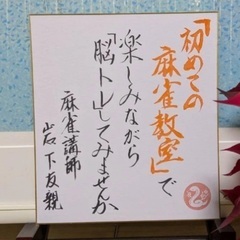 「初めての
麻雀教室」で
楽しみながら
「脳トレ」してみませんか
麻雀講師
岩下友親